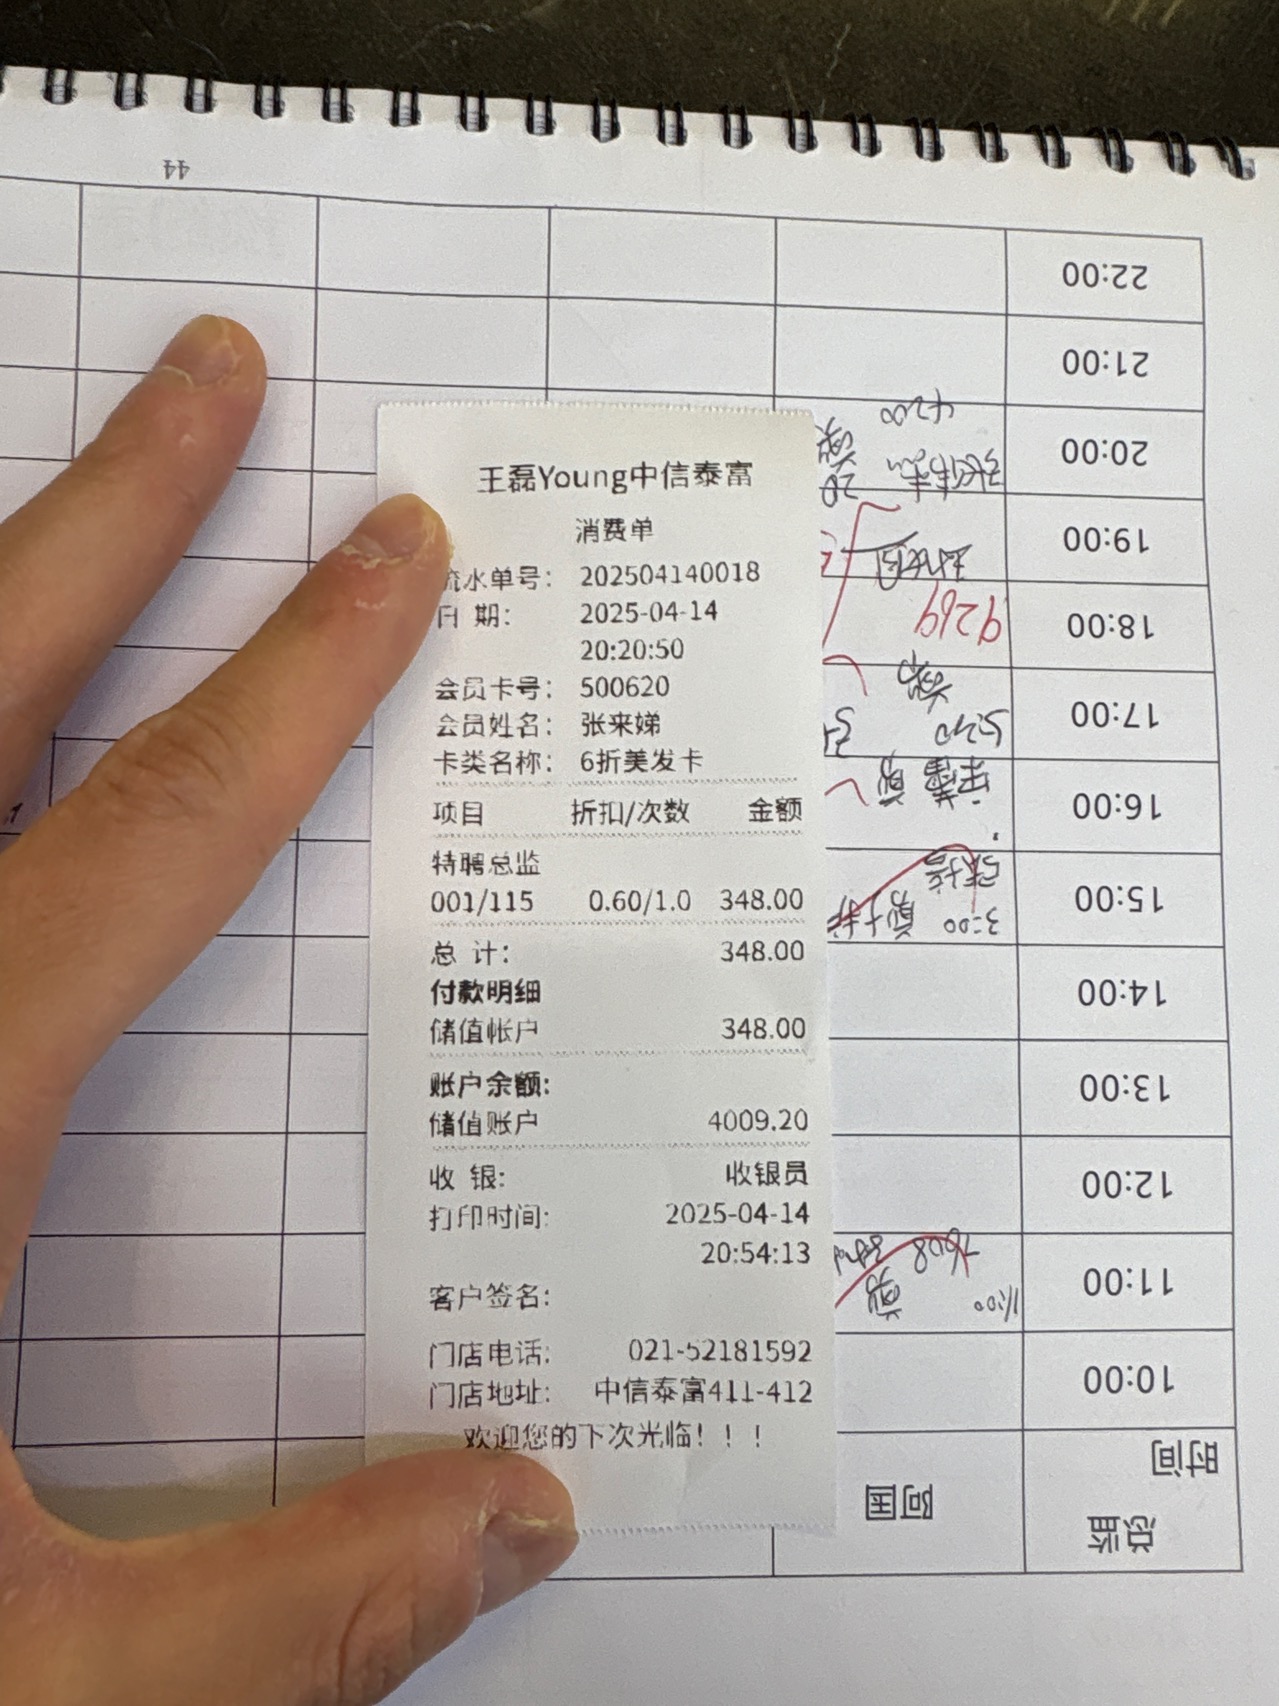 王磊Young中信泰富
消费单
流水单号： 202504140018
日 期： 2025-04-14
20:20:50
会员卡号： 500620
会员姓名： 张来娣
卡类名称： 6折美发卡
项目 折扣/次数 金额
特聘总监
001/115 0.60/1.0 348.00
总 计： 348.00
付款明细
储值帐户 348.00
账户余额：
储值账户 4009.20
收 银： 收银员
打印时间： 2025-04-14
20:54:13
客户签名：
门店电话： 021-52181592
门店地址： 中信泰富411-412
欢迎您的下次光临！！！
44
总监
时间
阿国
10:00
11:00
11:00
7608
12:00
13:00
14:00
15:00
3:00
16:00
17:00
18:00
9269
19:00
20:00
4200
21:00
22:00